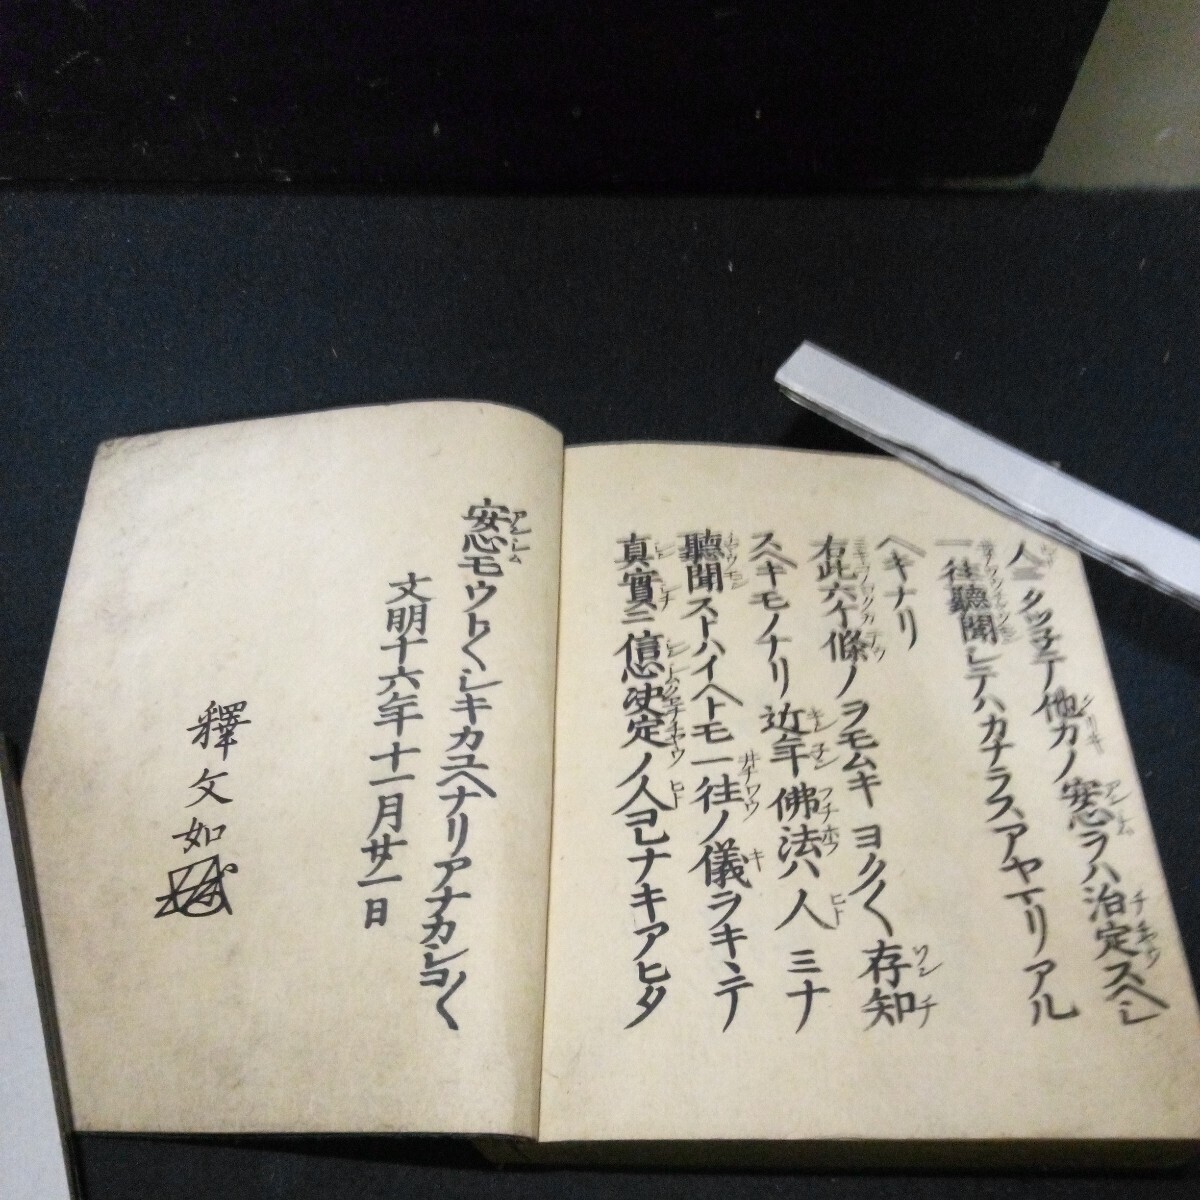 人ニクツネテ他力ノ安心ヲハ治定スヘシ
一往聽聞シテハカナラスアヤマリアル
ヘキナリ
右此六ケ條ノヲモムキヨク〱存知
スヘキモノナリ近年佛法ハ人ミナ
聽聞ストハイヘトモ一往ノ儀ヲキヽテ
真實ニ信心决定ノ人コレナキアヒタ
安心モウト〱シキカユヘナリアナカシコ〱
文明十六年十一月廿一日
釋文如